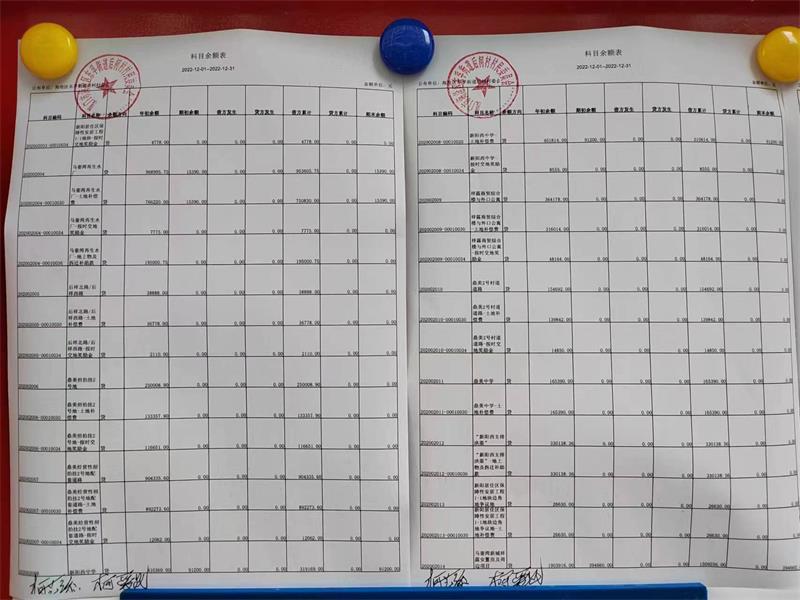 科目余额表
2022-12-01--2022-12-31
金额单位：元
科目编码 科目名称 余额方向 年初余额 期初余额 借方发生 贷方发生 借方累计 贷方累计 期末余额
新阳居住区保
障性安居工程
1-1地块-按时
交地奖励金 贷 4778.00 0.00 0.00 0.00 4778.00 0.00 0.00
马銮湾再生水
厂
202002004 贷 15390.00 0.00 0.00 0.00 15390.00
马銮湾再生水
厂-土地补偿
费
202002004-00010030 贷 766220.00 15390.00 0.00 0.00 750830.00 0.00 15390.00
马銮湾再生水
厂-按时交地
奖励金
202002004-00010034 贷 7775.00 0.00 0.00 0.00 7775.00 0.00 0.00
马銮湾再生水
厂-地上物及
拆迁补助款
贷 0.00 0.00 0.00 0.00 0.00
后祥北路/后
祥西路
202002005 贷 38888.00 0.00 0.00 0.00 38888.00 0.00 0.00
后祥北路/后
祥西路-土地
补偿费
202002005-00010030 贷 36778.00 0.00 0.00 0.00 36778.00 0.00 0.00
后祥北路/后
祥西路-按时
交地奖励金
202002005-00010034 贷 2110.00 0.00 0.00 0.00 2110.00 0.00 0.00
鼎美招拍挂2
号地
202002006 贷 250008.90 0.00 0.00 0.00 250008.90 0.00 0.00
鼎美招拍挂2
号地-土地补
偿费
202002006-00010030 贷 133357.90 0.00 0.00 0.00 133357.90 0.00 0.00
鼎美招拍挂2
号地-按时交
地奖励金
202002006-00010034 贷 116651.00 0.00 0.00 0.00 116651.00 0.00 0.00
鼎美经营性招
拍挂2号地配
套道路
202002007 贷 904335.60 0.00 0.00 0.00 904335.60 0.00 0.00
鼎美经营性招
拍挂2号地配
套道路-土地
补偿费
202002007-00010030 贷 892273.60 0.00 0.00 0.00 892273.60 0.00 0.00
鼎美经营性招
拍挂2号地配
套道路-按时
交地奖励金
202002007-00010034 贷 12062.00 0.00 0.00 0.00 12062.00 0.00 0.00
新阳西中学 贷 91200.00 0.00 0.00 0.00 91200.00
科目余额表
2022-12-01--2022-12-31
科目编码 科目名称 余额方向 年初余额 期初余额 借方发生 贷方发生 借方累计 贷方累计 期末余额
新阳西中学-
土地补偿费
202002008-00010030 贷 91200.00 0.00 0.00 310614.00 0.00 91200.00
新阳西中学-
按时交地奖励
金
202002008-00010034 贷 8555.00 0.00 0.00 0.00 8555.00 0.00
祥露商贸综合
楼与外口公寓
202002009 贷 364178.00 0.00 0.00 0.00 364178.00 0.00
祥露商贸综合
楼与外口公寓
-土地补偿费
202002009-00010030 贷 316014.00 0.00 0.00 0.00 316014.00 0.00
祥露商贸综合
楼与外口公寓
-按时交地奖
励金
202002009-00010034 贷 48164.00 0.00 0.00 0.00 48164.00 0.00
鼎美2号村道
道路
202002010 贷 154692.00 0.00 0.00 0.00 154692.00 0.00
鼎美2号村道
道路-土地补
偿费
202002010-00010030 贷 139842.00 0.00 0.00 0.00 139842.00 0.00
鼎美2号村道
道路-按时交
地奖励金
202002010-00010034 贷 14850.00 0.00 0.00 0.00 14850.00 0.00
202002011 鼎美中学 贷 165390.00 0.00 0.00 0.00 165390.00 0.00
鼎美中学-土
地补偿费
202002011-00010030 贷 165390.00 0.00 0.00 0.00 165390.00 0.00
"新阳西主排
洪渠"
202002012 贷 330138.36 0.00 0.00 0.00 330138.36 0.00
"新阳西主排
洪渠"-地上
物及拆迁补助
款
贷 330138.36 0.00 0.00 0.00 330138.36 0.00
新阳居住区保
障性安居工程
1-1地块边角
地争议地
202002013 贷 26630.00 0.00 0.00 0.00 26630.00 0.00
新阳居住区保
障性安居工程
1-1地块边角
地争议地-土
地补偿费
202002013-00010030 贷 26630.00 0.00 0.00 0.00 26630.00 0.00
马銮湾新城祥
露安置房及周
边项目
202002014 贷 0.00 0.00 0.00